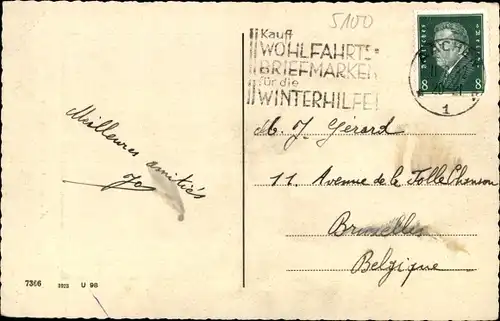 5100
Kauff
WOHLFAHRTS-
BRIEFMARKEN
für die
WINTERHILFE!
8 8
1
Meilleures amitiés
Jo
M. J. Gérard
11. Avenue de la Folle Chanson
Bruxelles
Belgique
7366 U 98